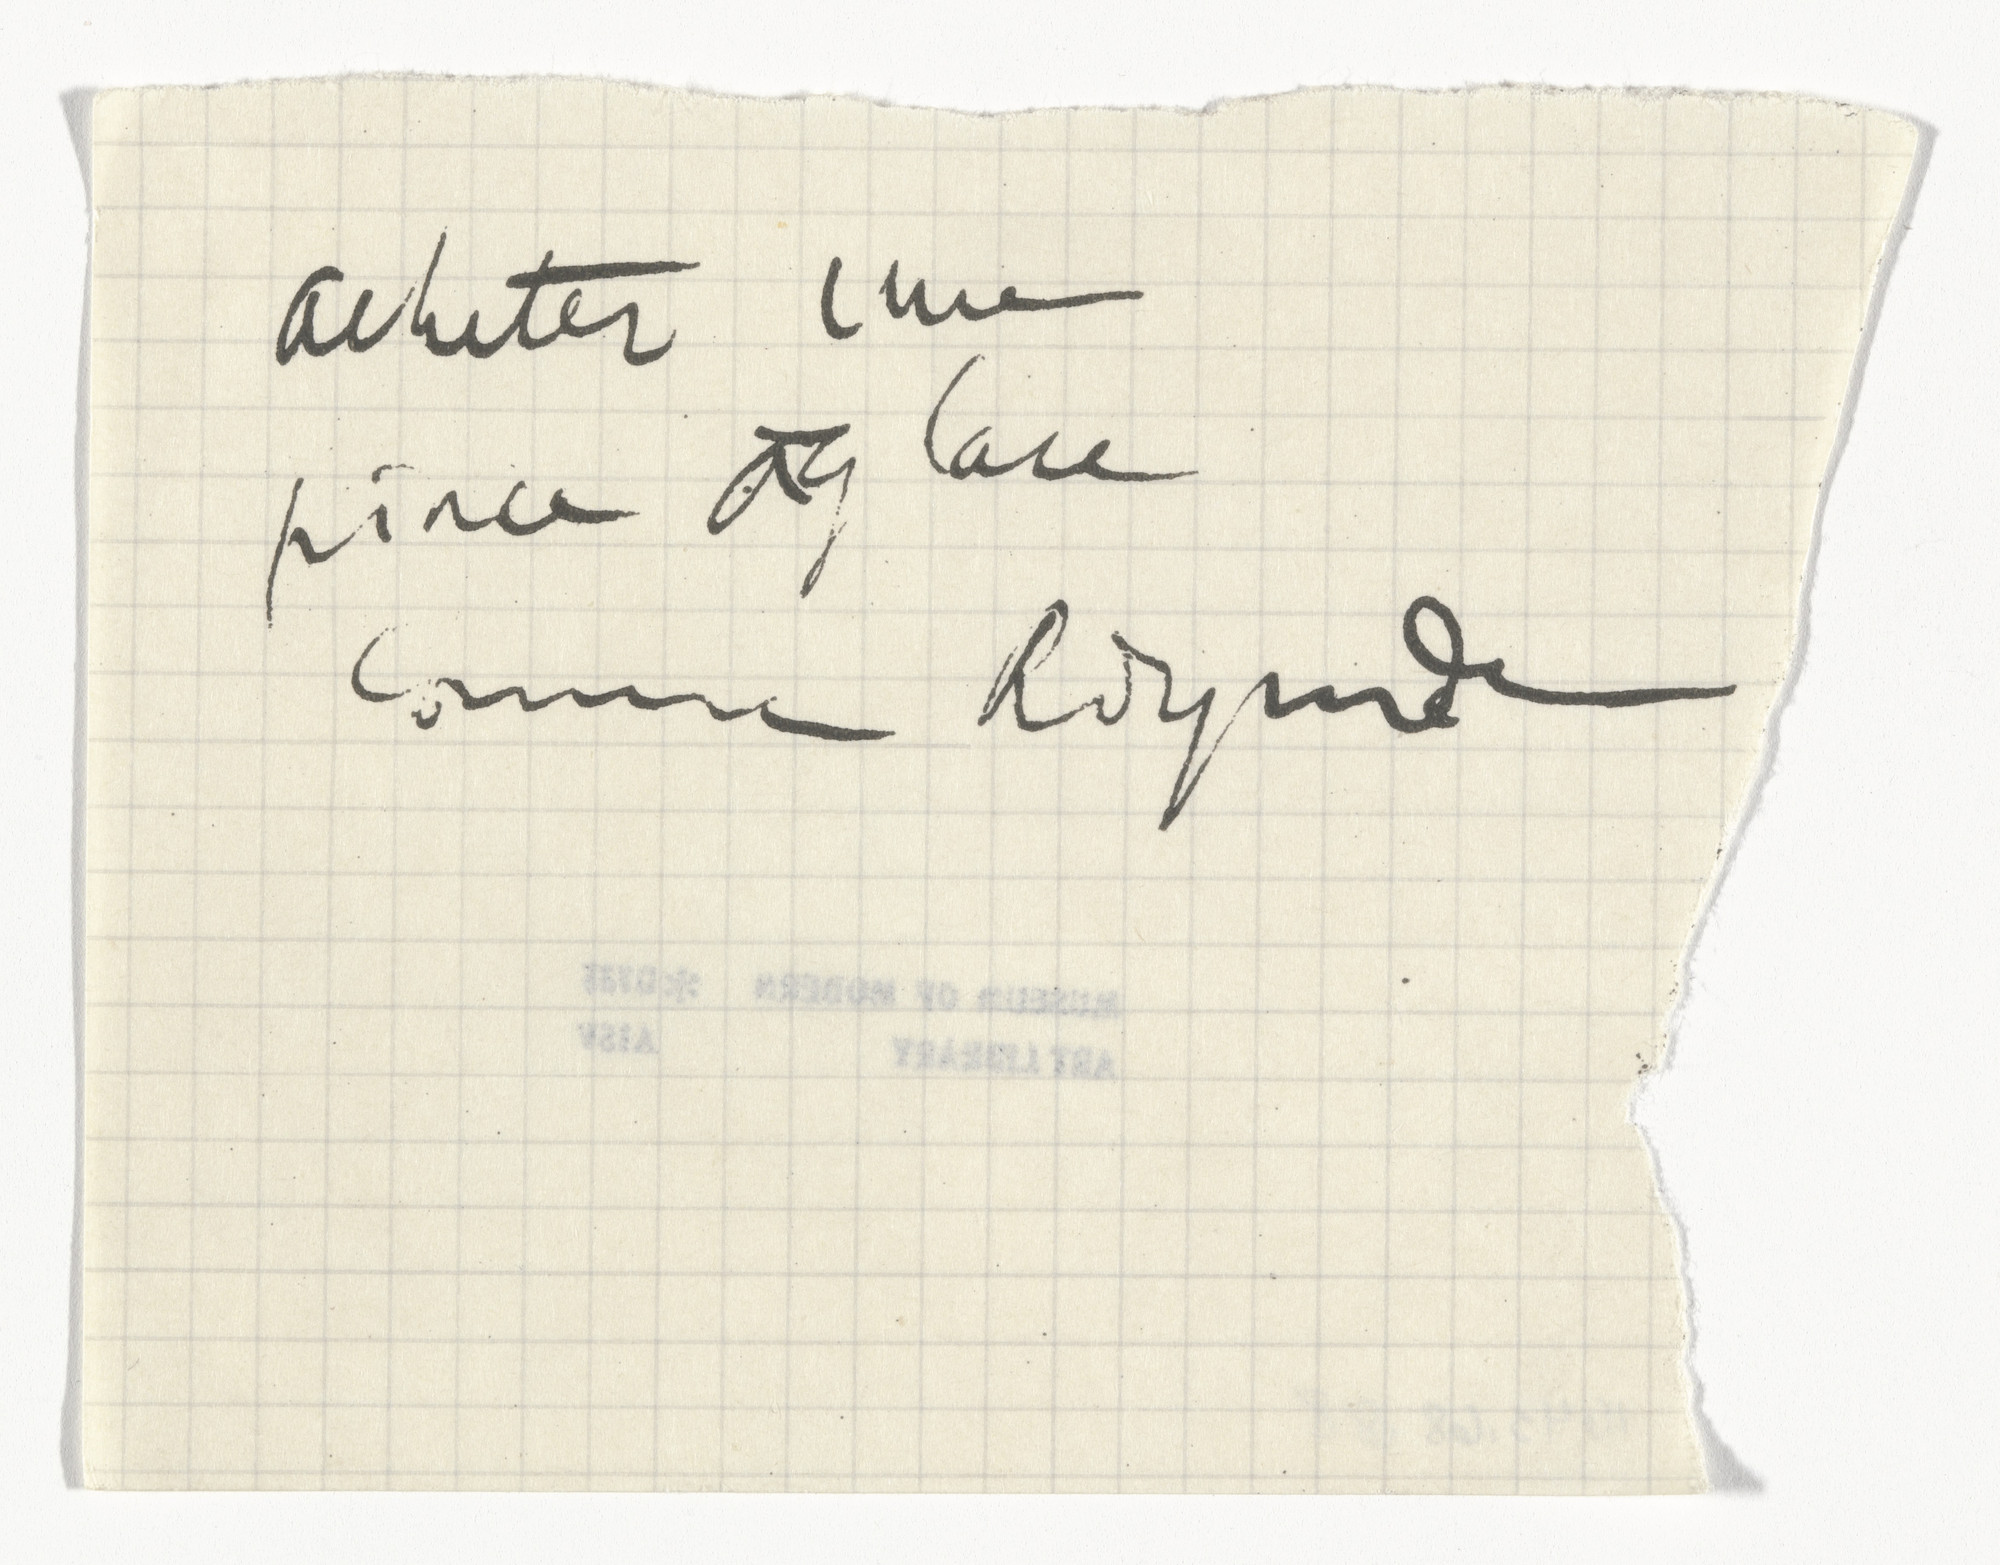 acheter une
pince à glace
comme Rdymade
MUSEUM OF MODERN
ART LIBRARY